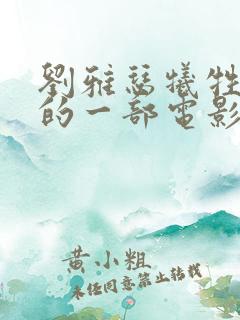 劉雅瑟犧牲
的一部電影
黃小粗
未經同意禁止轉載